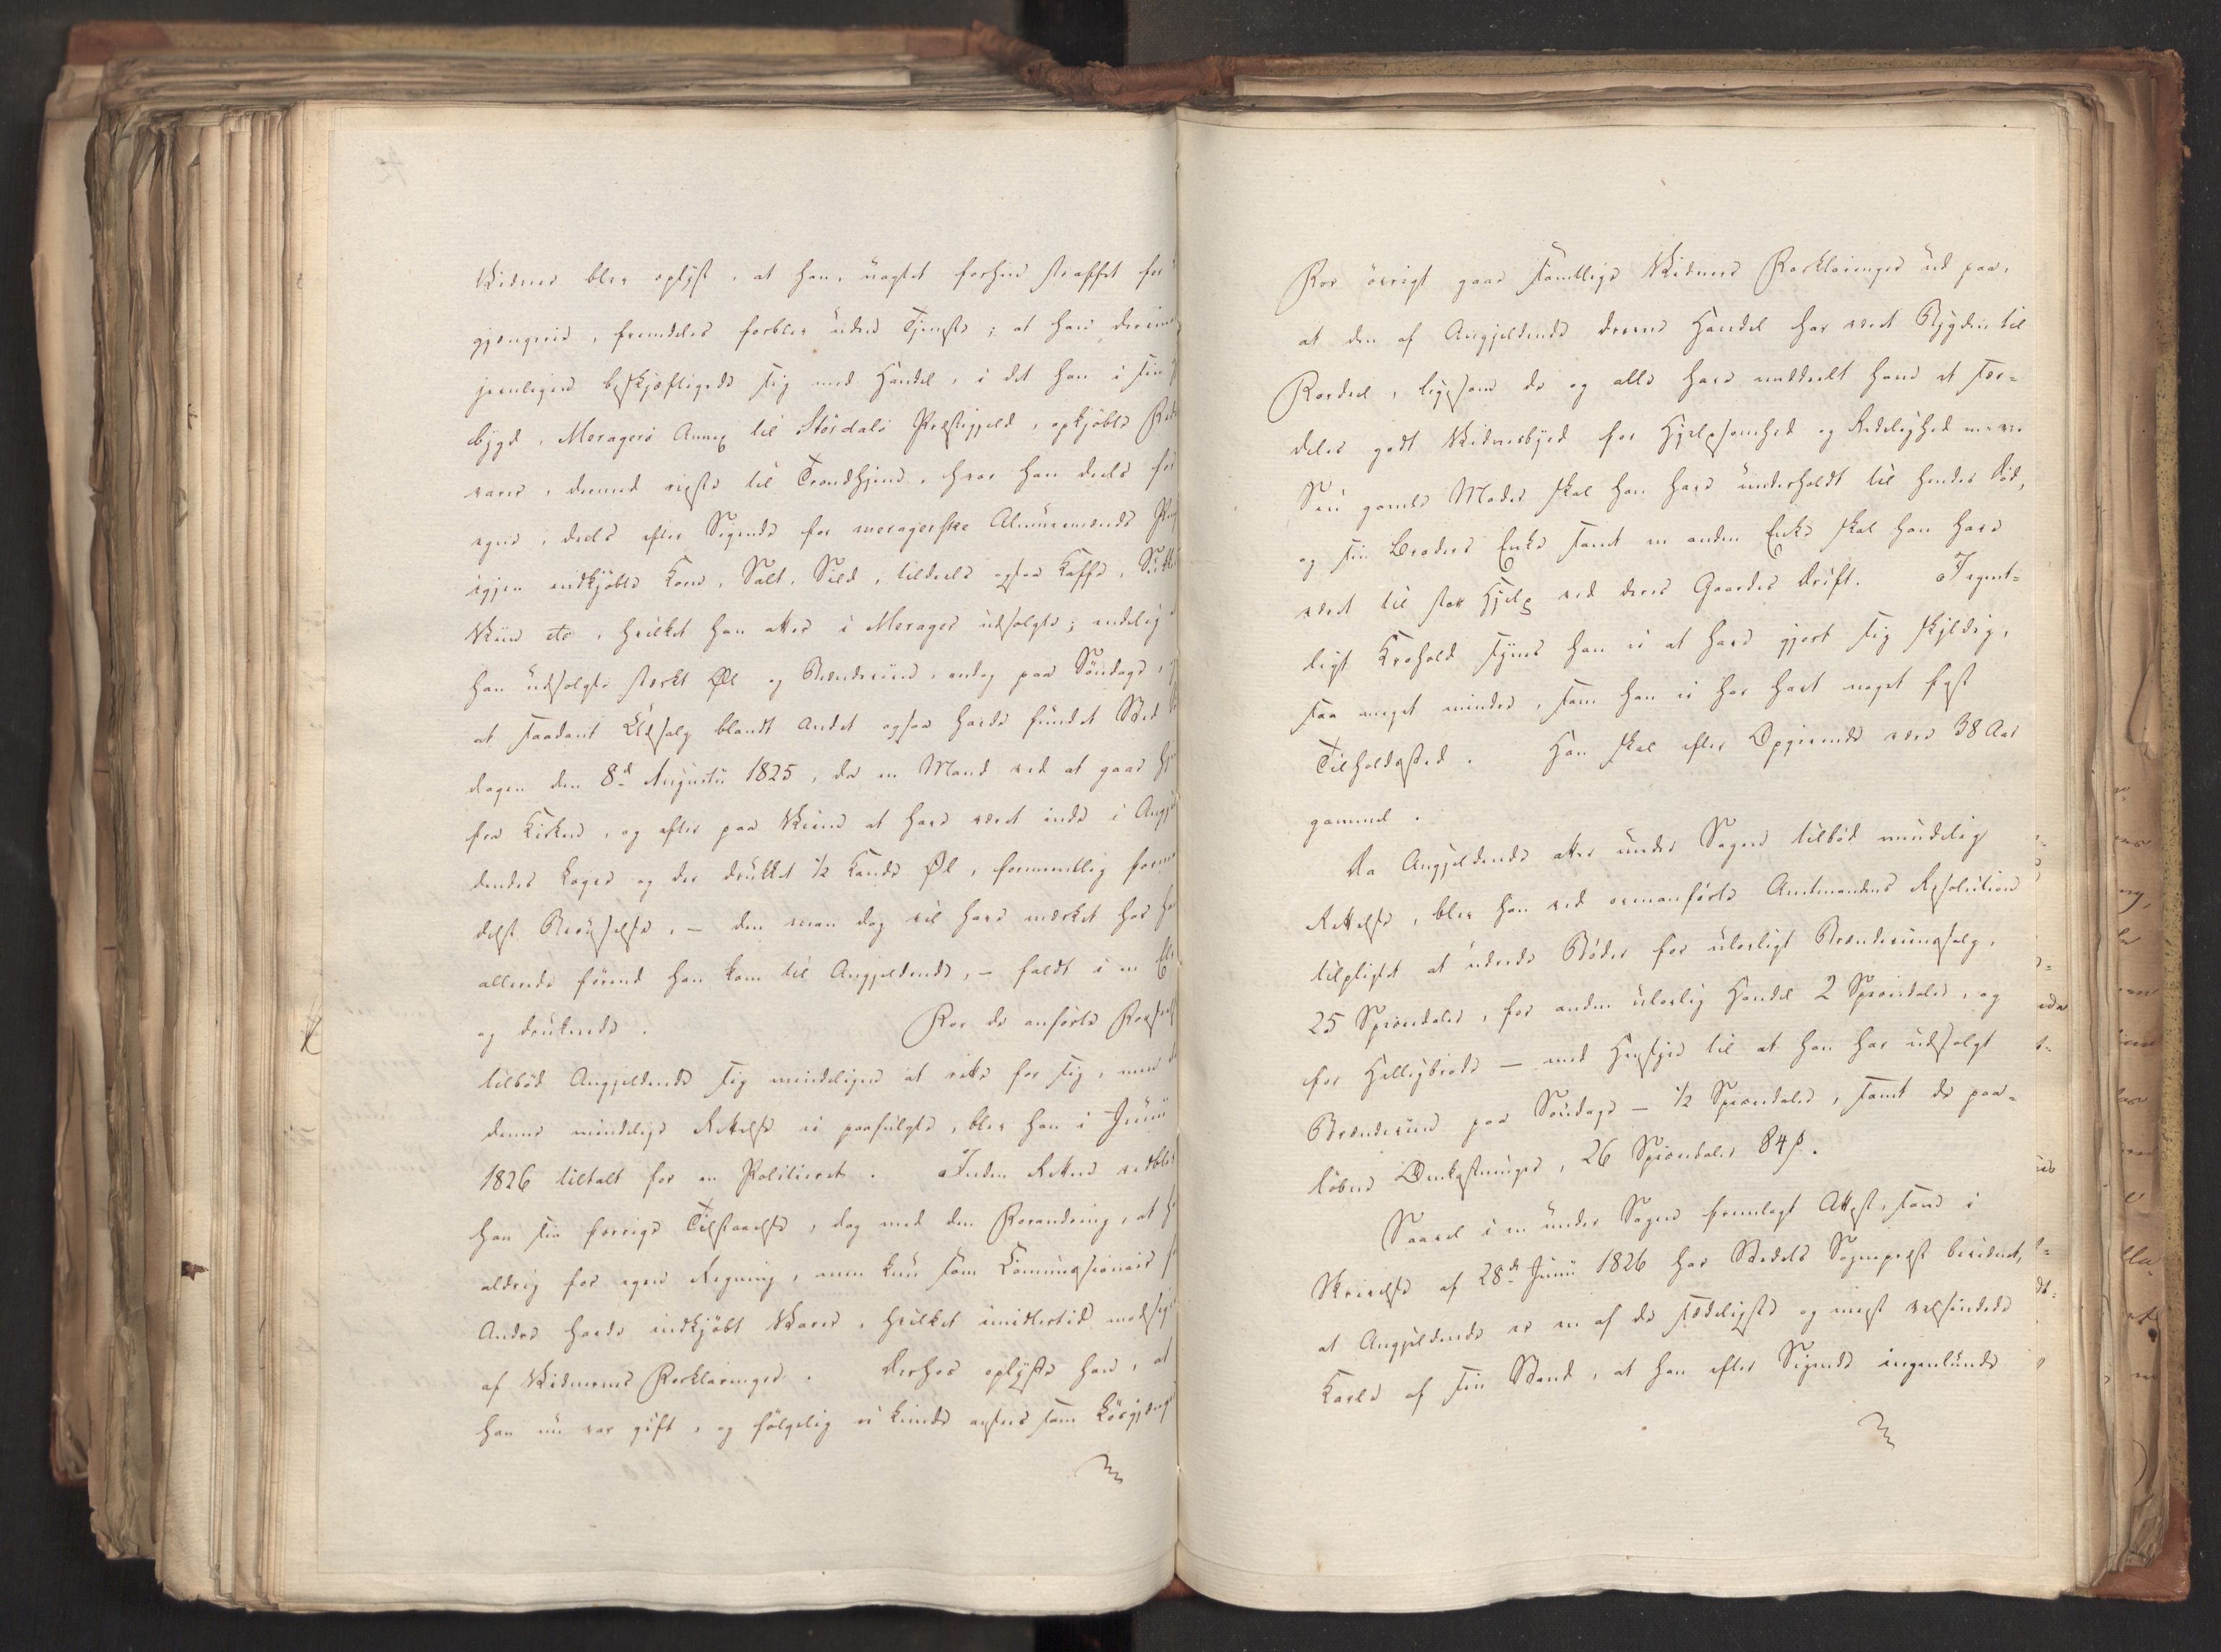 Vidner blev oplyst, at han, uagtet forhen straffet for
gjængerie, fremdeles forblev uden Tjeneste; at han derimod
jevnligen beskjæftigede sig med Handel, i det han i sin
bygd, Merager Annex til Stördals Præstegjeld, opkjöbte
varer, dermed reiste til Trondhjem, hvor han deels for
egen, deels efter Sigende for meragerske Almuemænds
igjen indkjöbte Korn, Salt, Sild, tildeels ogsaa Kaffe,
Viin etc, hvilket han atter i Merager udsolgte; endelig
han udsolgte stærkt Øl og Brændeviin, endog paa Söndage,
at saadant Udsalg blandt Andet ogsaa havde fundet Sted
dagen den 8de Augustii 1825, da en Mand ved at gaae
fra Kirken, og efter paa Veien at have været inde i
dendes Koger og der drukket 1/2 Kande Øl, formeentlig
delst Beruselse, - den man dog vil have mærket hos
allerede förend han kom til Angjeldende, - faldt i en
og druknede. For de anförte
tilböd Angjeldende sig mindeligen at rette for sig, men
denne mindelige Rettelse ei paafulgte, blev han i Junii
1826 tiltalt for en Politieret. Inden Retten vedblev
han sin forrige Tilstaaelse, dog med den Forandring, at
aldrig for egen Regning, men kun som Commissionair
Andre havde indkjöbt Varer, hvilket imidlertid modsiges
af Vidnernes Forklaringer. Derhos oplyste han, at
han nu var gift, og fölgelig ei kunde ansees som Lösgjænger
For övrigt gaae samtlige Vidners Forklaringer ud paa,
at den af Angjeldende drevne Handel har været Bygden til
Fordeel, ligesom de og alle have meddeelt ham et sær=
deles godt Vidnesbyrd for Hjelpsomhed og Redelighed m. v.
Sin gamle Moder skal han have underholdt til hendes Död,
og sin Broders Enke samt en anden Enke skal han have
været til stor Hjelp ved deres Gaardes Drift. Egent=
ligt Krohold synes han ei at have gjort sig skyldig,
saa meget mindre, som han ei har havt noget fast
Tilholdssted. Han skal efter Opgivende være 38 Aar
gammel.
Da Angjeldende atter under Sagen tilböd mindelig
Rettelse, blev han ved ovenanförte Amtmandens Resolution
tilpligtet at udrede Böder for ulovligt Brændeviinssalg,
25 Speciedaler, for anden ulovlig Handel 2 Speciedaler, og
for Helligbröde - med Hensyn til at han har udsolgt
Brændeviin paa Söndage - 1/2 Speciedaler, samt de paa=
löbne Omkostninger, 26 Speciedaler 84 s.
Saavel i en under Sagen fremlagt Attest, som i
Skrivelse af 28de Junii 1826 har Stedets Sognepræst bevidnet,
at Angjeldende er en af de sædeligste og meest velsindede
Karle af sin Stand, at han efter Sigende ingenlunde